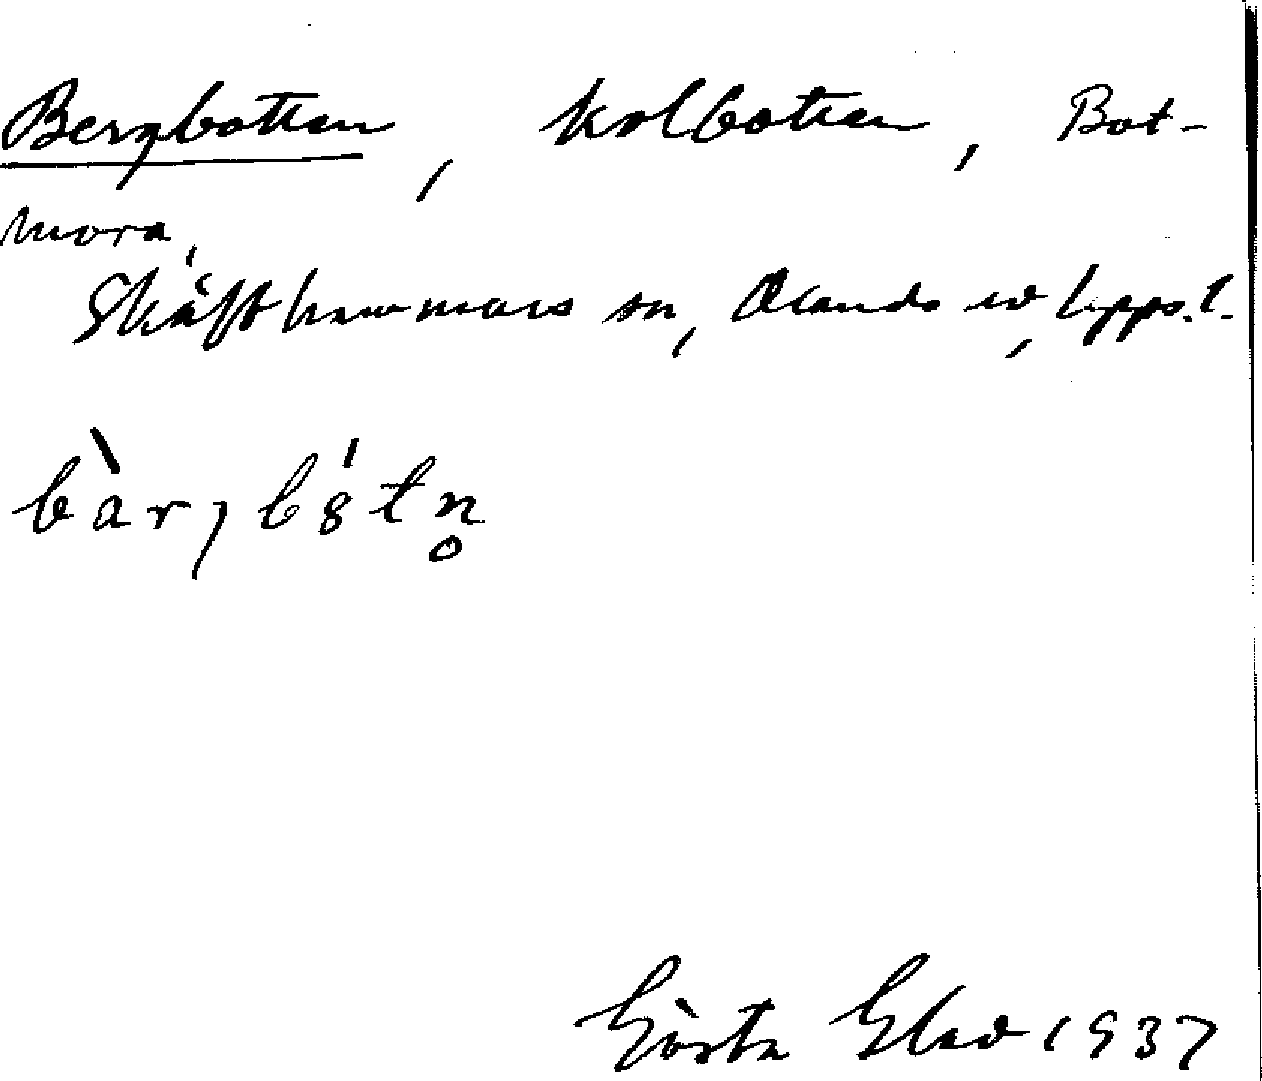 Bergbotten, kolbotten, Bot-
mora,
Skäfthammars sn, Olands hd, Upps. l.
bàrgbǿtn̥
Gösta Glad 1937